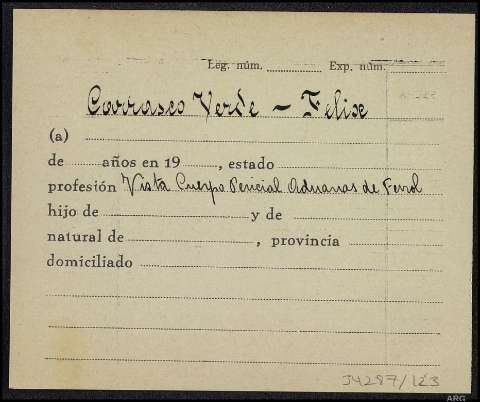 Leg. núm. Exp. núm.
Carrasco Verde - Felix
(a)
de años en 19 , estado
profesión Vista Cuerpo Pericial Aduanas de Ferrol
hijo de y de
natural de , provincia
domiciliado
J4287/123
ARG